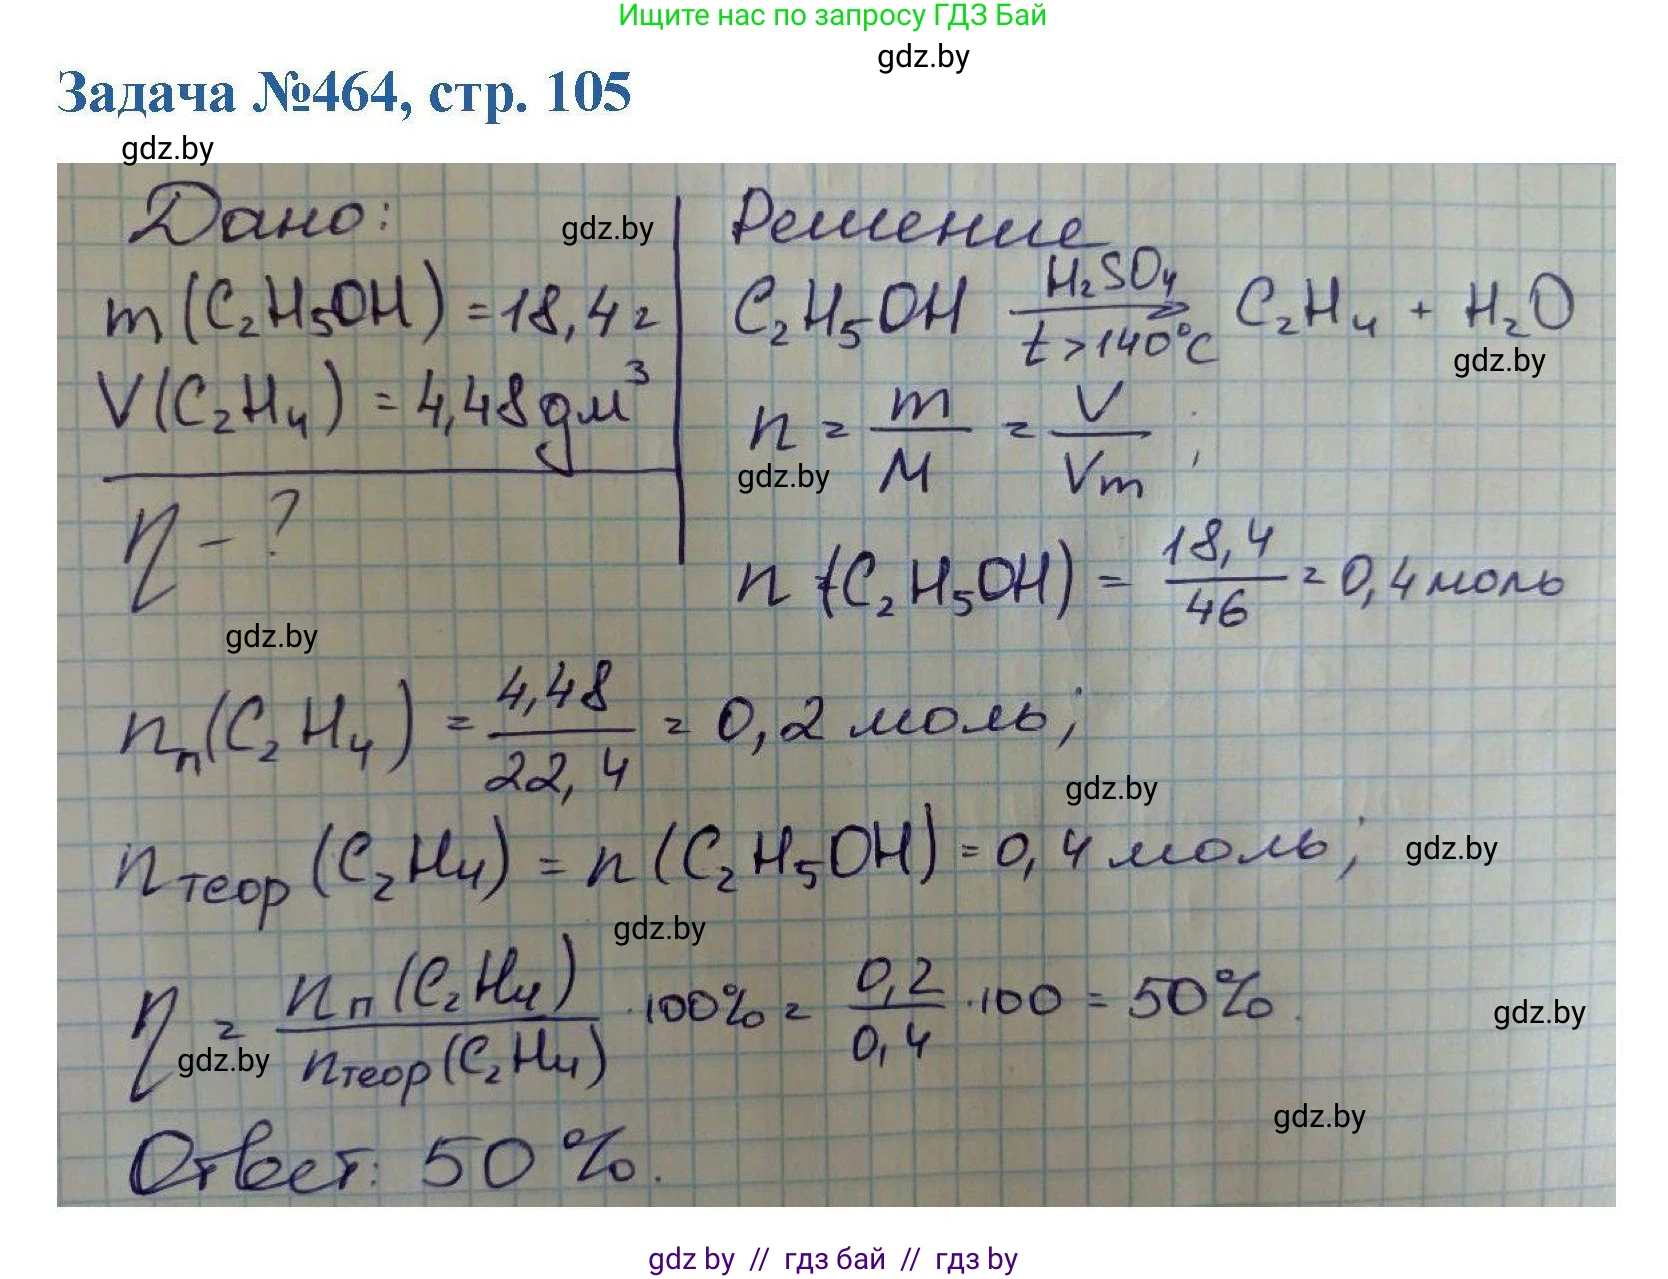 Ищите нас по запросу ГДЗ Бай
gdz.by
Задача №464, стр. 105
gdz.by
Дано:
gdz.by
m(C₂H₅OH) = 18,4 г
V(C₂H₄) = 4,48 дм³
η - ?
gdz.by
Решение
C₂H₅OH H₂SO₄ t > 140°C → C₂H₄ + H₂O
gdz.by
n = m/M = V/Vm ;
gdz.by
n (C₂H₅OH) = 18,4/46 = 0,4 моль
nп(C₂H₄) = 4,48/22,4 = 0,2 моль;
gdz.by
nтеор (C₂H₄) = n (C₂H₅OH) = 0,4 моль;
gdz.by
gdz.by
η = nп (C₂H₄)/nтеор (C₂H₄) · 100% = 0,2/0,4 · 100 = 50%.
gdz.by
gdz.by
gdz.by
Ответ: 50 %.
gdz by // гдз бай // гдз by